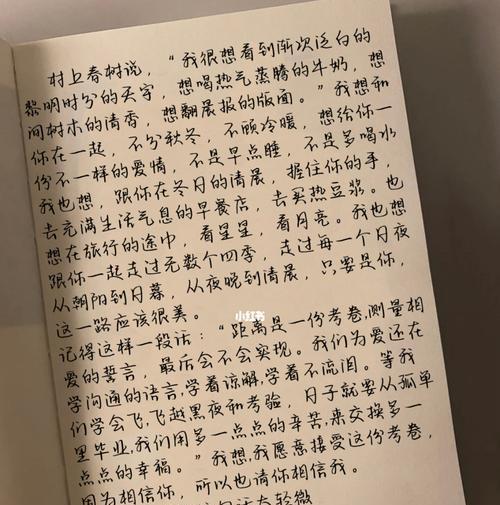 村上春树说，“我很想看到渐次泛白的
黎明时分的天宇，想喝热气蒸腾的牛奶，想
闻树木的清香，想翻晨报的版面。”我想和
你在一起，不分秋冬，不顾冷暖，想给你一
份不一样的爱情，不是早点睡，不是多喝水
我也想，跟你在冬月的清晨，握住你的手，
去充满生活气息的早餐店，去买热豆浆。也
想在旅行的途中，看星星，看月亮。我也想
跟你一起走过无数个四季，走过每一个日夜
从朝阳到日暮，从夜晚到清晨，只要是你，
这一路应该很美。
小红书
记得这样一段话：“距离是一份考卷，测量相
爱的誓言，最后会不会实现。我们为爱还在
学沟通的语言，学着谅解，学着不流泪。等我
们学会飞，飞越黑夜和考验，日子就要从孤单
里毕业，我们用多一点点的辛苦，来交换多一
点点的幸福。”我想，我愿意接受这份考卷，
因为相信你，所以也请你相信我。
轻微